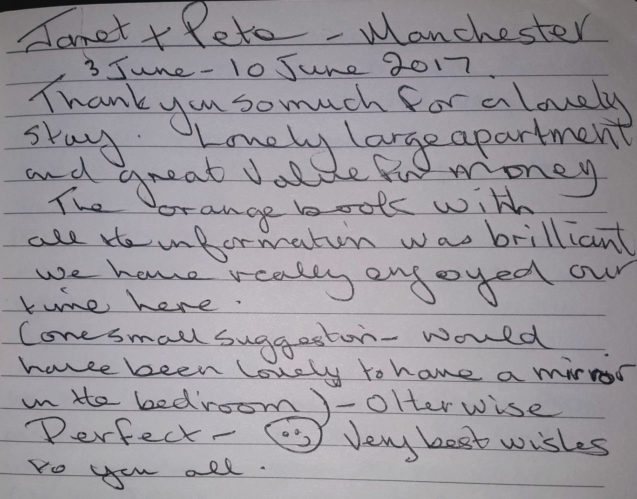 Janet + Pete - Manchester
3 June - 10 June 2017.
Thank you so much for a lovely
stay. Lovely large apartment
and great value for money
The orange book with
all the information was brilliant
we have really enjoyed our
time here.
(one small suggestion - would
have been lovely to have a mirror
in the bedroom) - Otherwise
Perfect - Very best wishes
to you all.